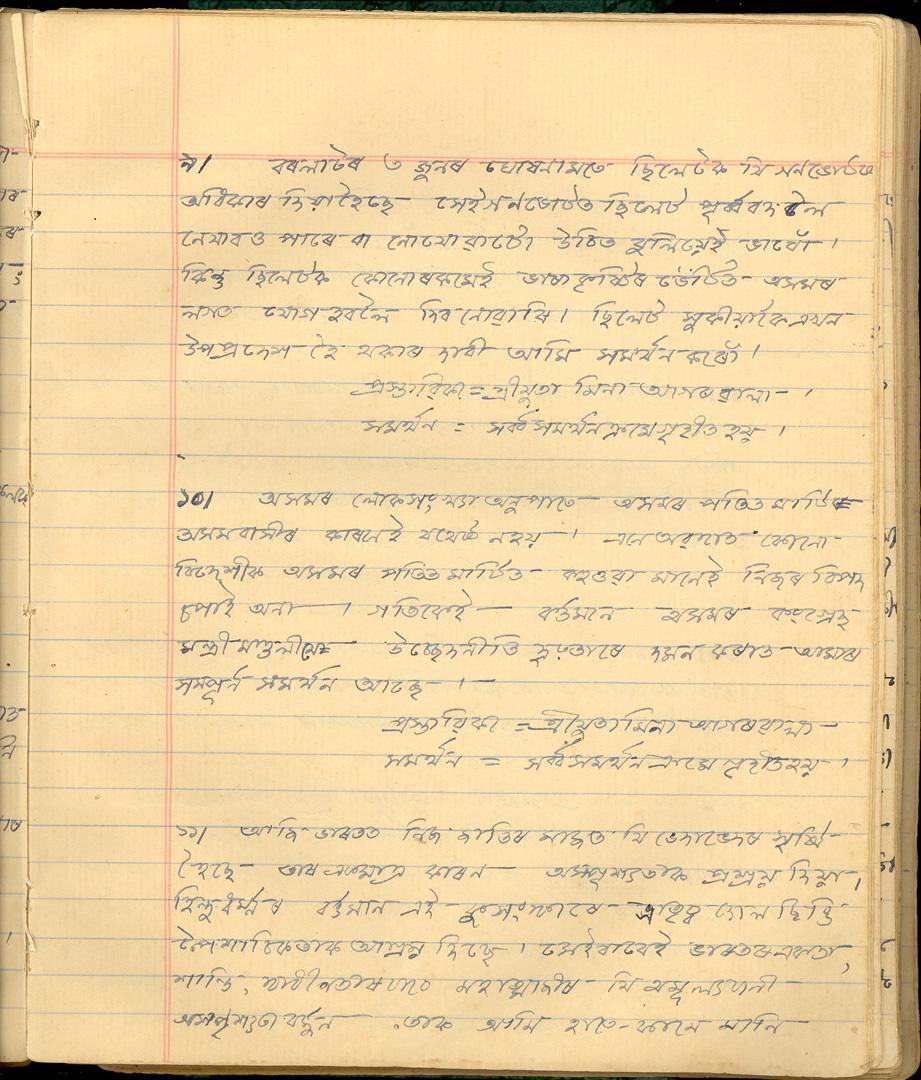 ৯। বৰলাটৰ ৩ জুনৰ ঘোষনামতে ছিলেটক যি গনভোটত
অধিকাৰ দিয়াহৈছে সেইগনভোটত ছিলেট পূৰ্ব্ববঙ্গলৈ
নেযাবও পাৰে বা নোযোৱাটো উচিত বুলিয়েই ভাবোঁ।
কিন্তু ছিলেটক কোনোৰকমেই ভাষা কৃষ্টিৰ ভেটিত অসমৰ
লগত যোগ হবলৈ দিব নোৱাৰি। ছিলেট সুকীয়াকৈ এখন
উপপ্ৰদেশ হৈ থকাৰ দাবী আমি সমৰ্থন কৰোঁ।
প্ৰস্তাৱিকা = শ্ৰীযুতা মিনা আগৰৱালা।
সমৰ্থন = সৰ্ব্বসমৰ্থনক্ৰমে গৃহীত হয়।
১০। অসমৰ লোকসংখ্যা অনুপাতে অসমৰ পতিত মাটি
অসমবাসীৰ কাৰনেই যথেষ্ট নহয়। এনে অৱস্থাত কোনো
বিদেশীক অসমৰ পতিত মাটিত বহুওৱা মানেই নিজৰ বিপদ
চপাই অনা। গতিকেই বৰ্ত্তমানে অসমৰ কংগ্ৰেছ
মন্ত্ৰী মণ্ডলীয়ে উচ্ছেদনীতি দৃঢ়ভাৱে দমন কৰাত আমাৰ
সম্পূৰ্ন সমৰ্থন আছে।
প্ৰস্তাৱিকা = শ্ৰীযুতা মিনা আগৰৱালা
সমৰ্থন = সৰ্ব্বসমৰ্থনক্ৰমে গৃহীত হয়।
১১। আজি ভাৰতত নিজ জাতিৰ মাজত যি ভেদাভেদৰ সৃষ্টি
হৈছে তাৰ একমাত্ৰ কাৰন অস্পৃশ্যতাক প্ৰশ্ৰয় দিয়া,
হিন্দুধৰ্ম্মৰ বৰ্ত্তমান এই কুসংস্কাৰে ভ্ৰাতৃত্ব ডোল ছিঙি
পৈশাচিকতাক আশ্ৰয় দিছে। সেইবাবেই ভাৰতৰ একতা,
শান্তি, স্বাধীনতাৰ বাবে মহাত্মাজীৰ যি
অস্পৃশ্যতা বৰ্জ্জন তাক আমি হাতে-কামে মানি